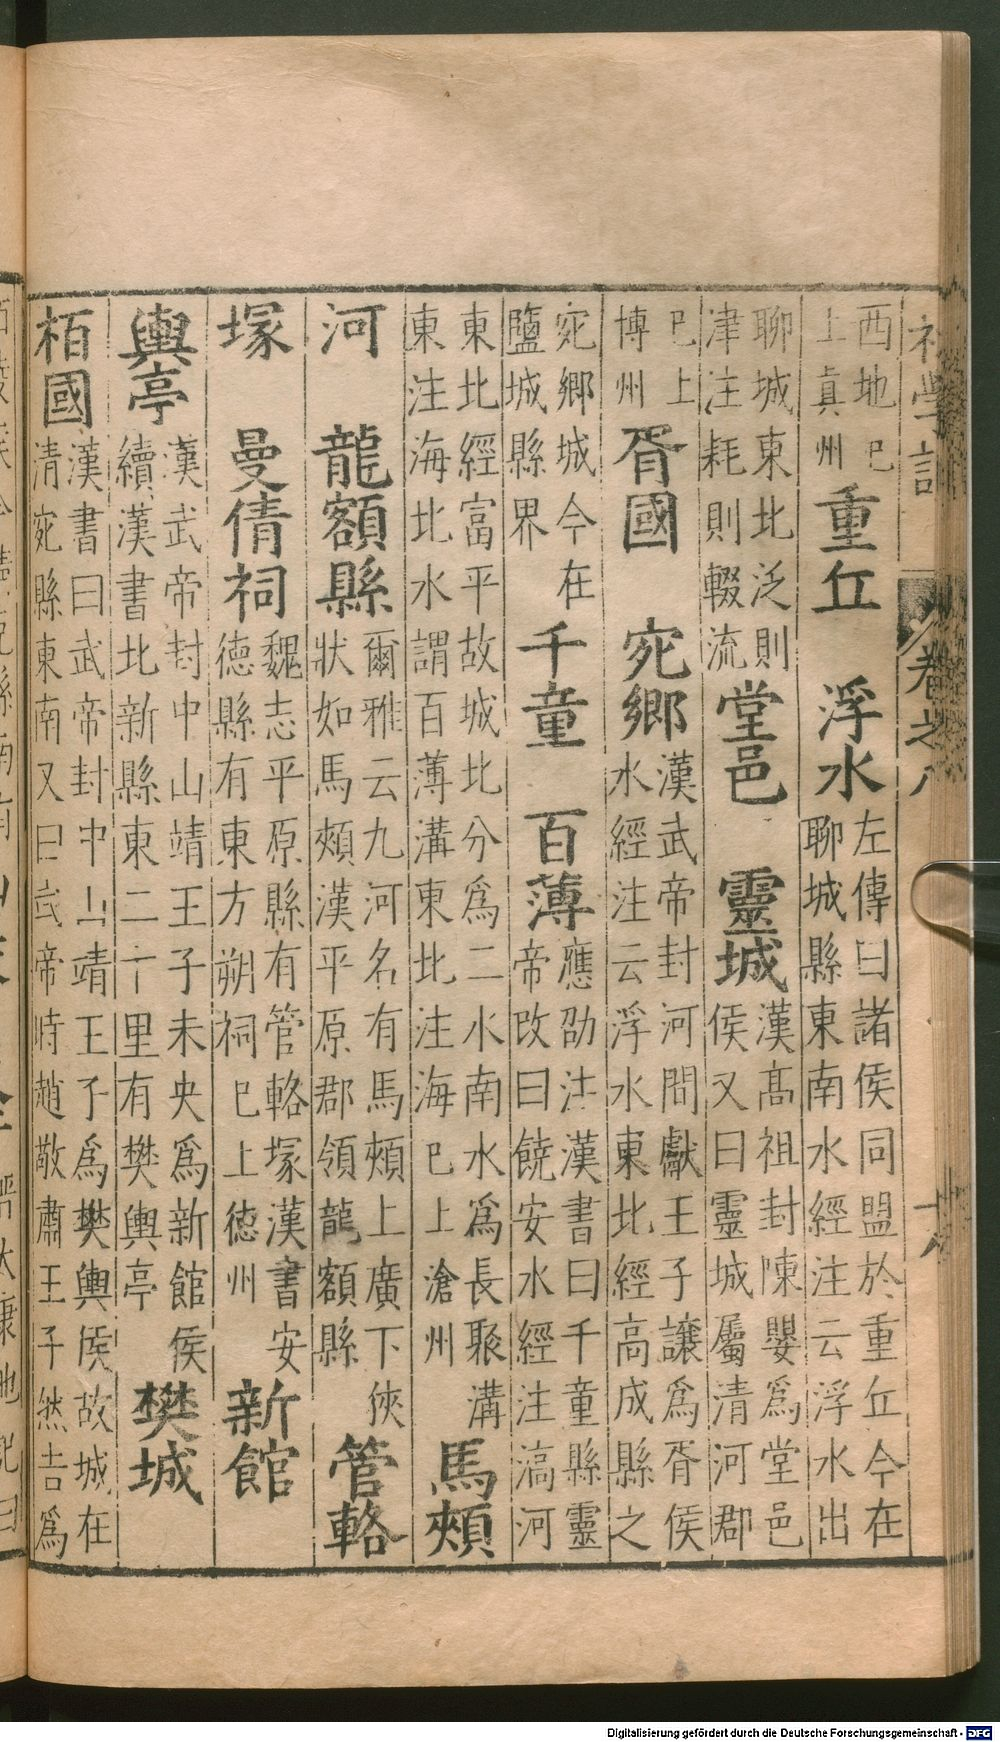 學記 卷之八
西地巳上真州 重丘 浮水 左傳曰諸侯同盟於重丘今在聊城縣東南水經注云浮水出
聊城東北泛則津注耗則輟流 堂邑 靈城 漢高祖封陳嬰爲堂邑侯又曰靈城屬清河郡
巳上博州 胥國 宛鄉 漢武帝封河間獻王子讓爲胥侯水經注云浮水東北經高成縣之
宛鄉城今在鹽城縣界 千童 百薄 應劭注漢書曰千童縣靈帝改曰饒安水經注滈河
東北經富平故城北分爲二水南水爲長聚溝東注海北水謂百薄溝東北注海巳上滄州 馬頰
河 龍額縣 爾雅云九河名有馬頰上廣下俠狀如馬頰漢平原郡領龍額縣 管輅
塚 曼倩祠 魏志平原縣有管輅塚漢書安德縣有東方朔祠巳上德州 新館
輿亭 漢武帝封中山靖王子未央爲新館侯續漢書北新縣東二十里有樊輿亭 樊城
栢國 漢書曰武帝封中山靖王子爲樊輿侯故城在清宛縣東南又曰武帝時趙敬肅王子然吉爲
Digitalisierung gefördert durch die Deutsche Forschungsgemeinschaft - DFG